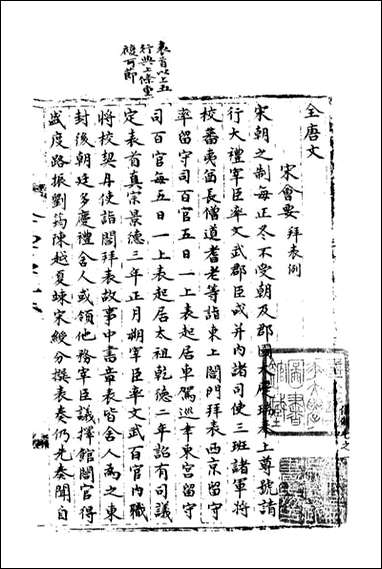 全唐文
宋會要 拜表例
宋朝之制每正冬不受朝及郡國大慶瑞上尊號請
行大禮宰臣率文武郡臣或并內諸司使三班諸軍將
校蕃夷酋長僧道耆老等詣東上閤門拜表西京留守
率留守司百官五日一上表起居車駕巡幸東宮留守
司百官每五日一上表起居太祖乾德二年詔有司議
定表首真宗景德三年正月朔宰臣率文武百官內職
將校契丹使詣閤拜表故事中書章表皆舍人為之東
封後朝廷多慶禮舍人或領他務宰臣議擇館閣官得
盛度路振劉筠陳越夏竦宋綬分撰表奏仍先奏聞自
表首以上五
行與上條重
複可節